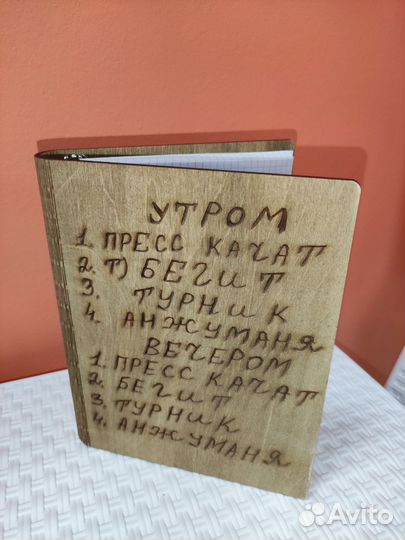 УТРОМ
1. ПРЕСС КАЧАТ
2. Т) БЕГИТ
3. ТУРНИК
4. АНЖУМАНЯ
ВЕЧЕРОМ
1. ПРЕСС КАЧАТ
2. БЕГИТ
3. ТУРНИК
4. АНЖУМАНЯ
Avito